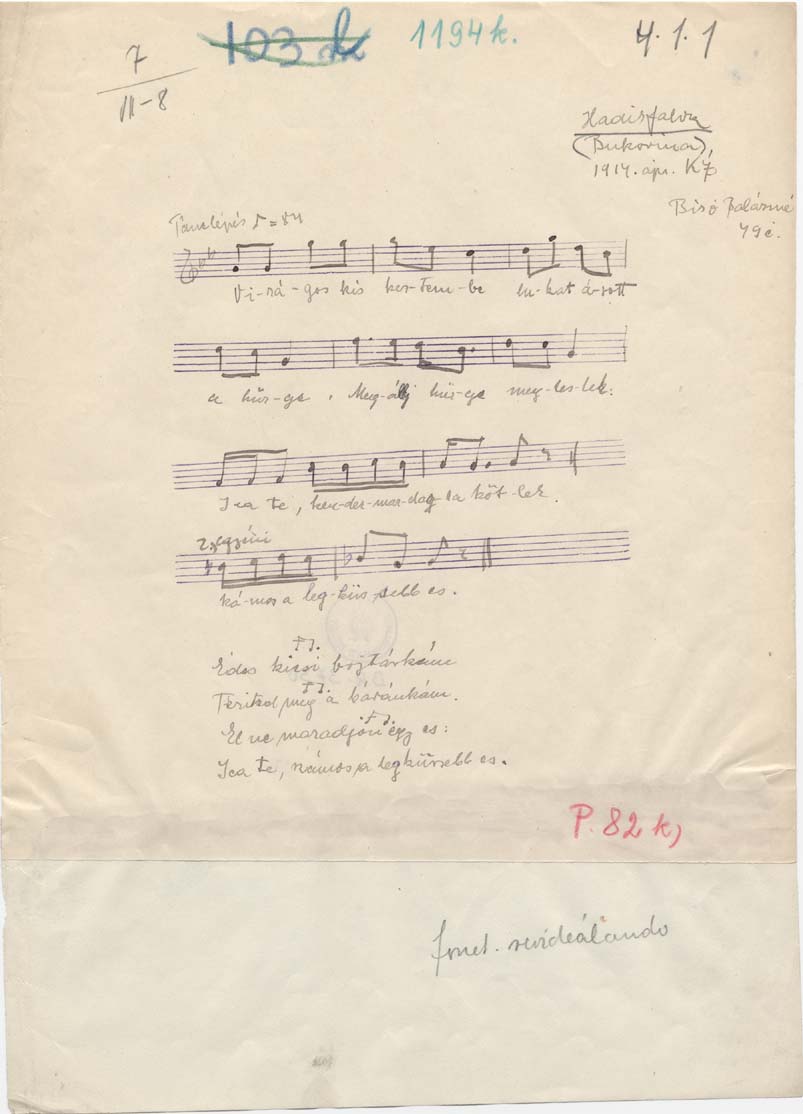 7
II-8
103 k
1194 k.
4.1.1
Hadisfalva
(Bukovina),
1914. ápr. KZ
Biró Balázsné
49 é.
Tánclépés ♪ = 84
Vi-rá-gos kis ker-tem-be lu-kat á-sott
a hür-ge. Meg-állj hür-ge meg-les-lek:
Ica te, ken-der-mar-dag-ra köt-lek.
2. egyéni
rá-mos a leg-küs-sebb es.
Édes kicsi bojtárkám
Téritsd meg a báránkám.
El ne maradjon egy es:
Ica te, rámos a legküssebb es.
P. 82 k)
fonet. revideálandó